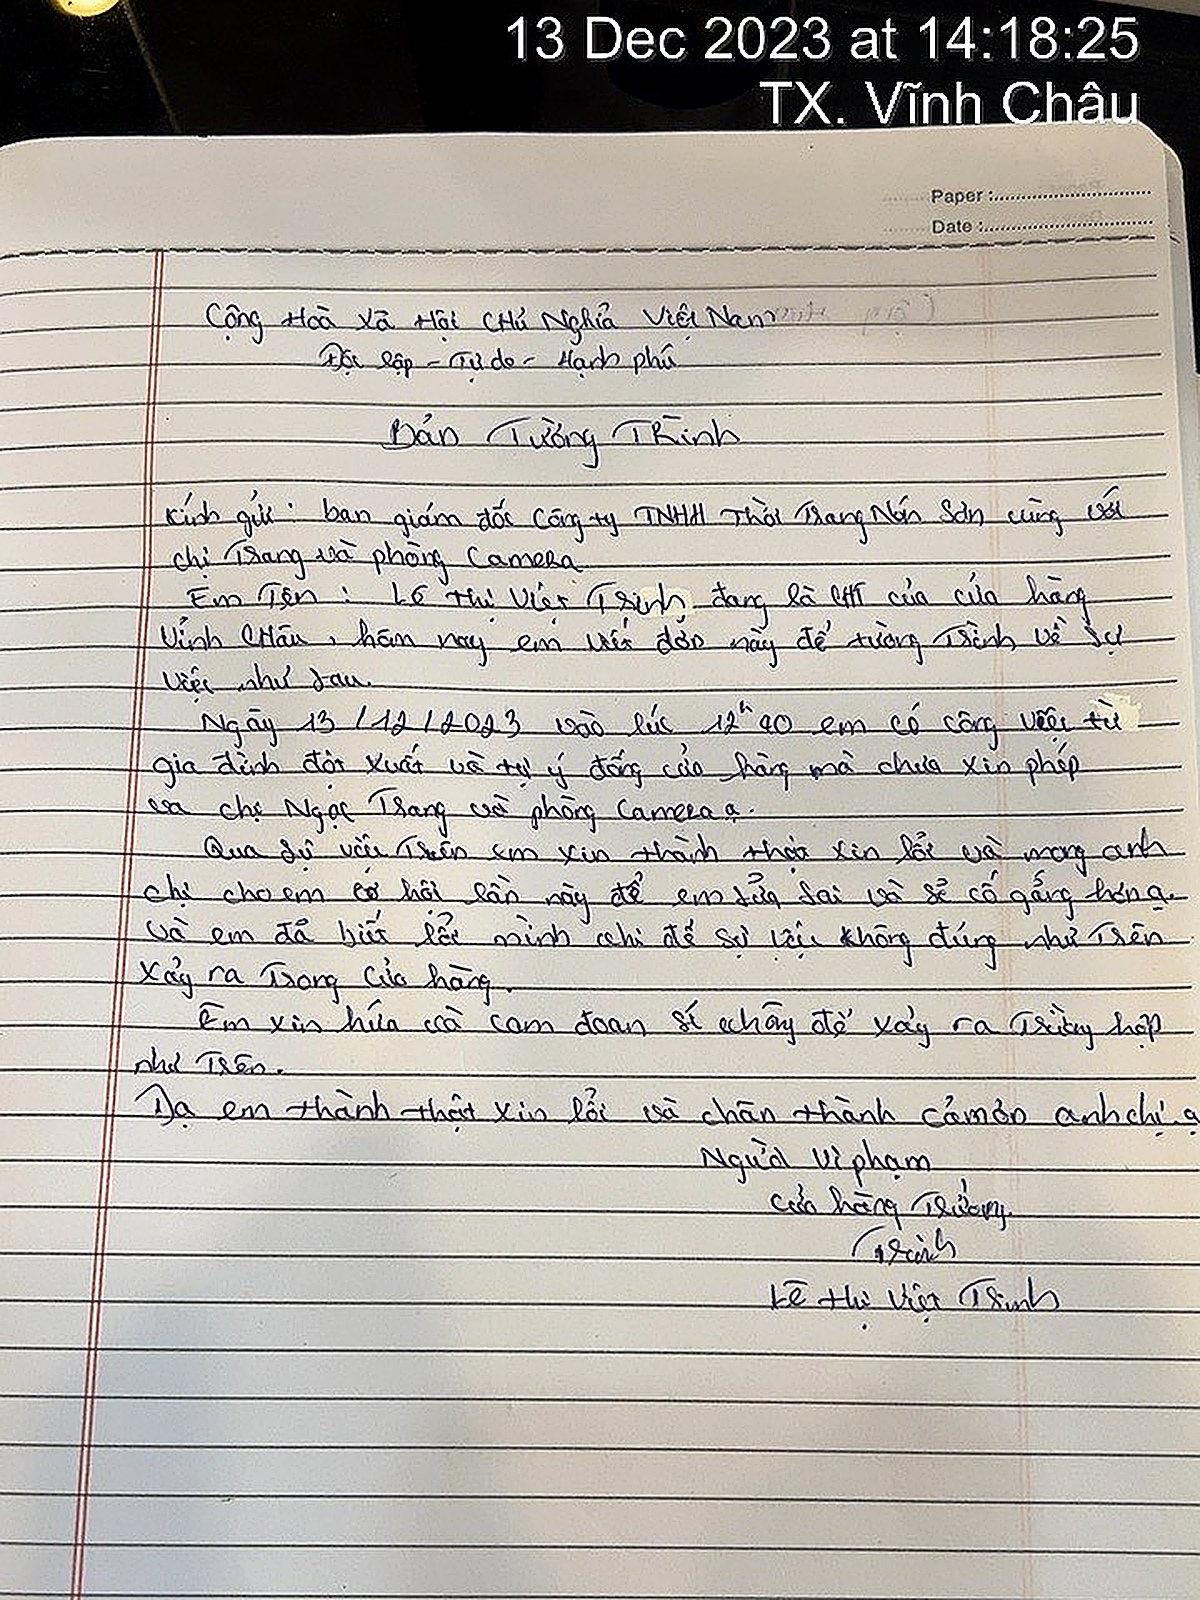 13 Dec 2023 at 14:18:25
TX. Vĩnh Châu
Paper :
Date :
Cộng Hoà Xã Hội Chủ Nghĩa Việt Nam
Độc lập - Tự do - Hạnh phú
Bản Tường Trình
Kính gửi : ban giám đốc Công ty TNHH Thời Trang Nón Sơn cùng với
chị Trang và phòng Camera
Em Tên : Lê Thị Việt Trinh đang là CHT của cửa hàng
Vĩnh Châu, hôm nay em viết đơn này để tường Trình về sự
việc như sau.
Ngày 13/12/2023 vào lúc 12h40 em có công việc từ
gia đình đột xuất và tự ý đóng cửa hàng mà chưa xin phép
chị Ngọc Trang và phòng Camera ạ.
Qua sự việc Trên em xin thành thật xin lỗi và mong anh
chị cho em cơ hội lần này để em sửa sai và sẽ cố gắng hơn ạ.
và em đã biết lỗi mình khi để sự việc không đúng như Trên
xảy ra Trong Cửa hàng.
Em xin hứa và cam đoan sẽ không để xảy ra Trường hợp
như Trên.
Dạ em thành thật xin lỗi và chân thành cảm ơn anh chị ạ
Người vi phạm
Cửa hàng Trưởng
Trinh
Lê Thị Việt Trinh